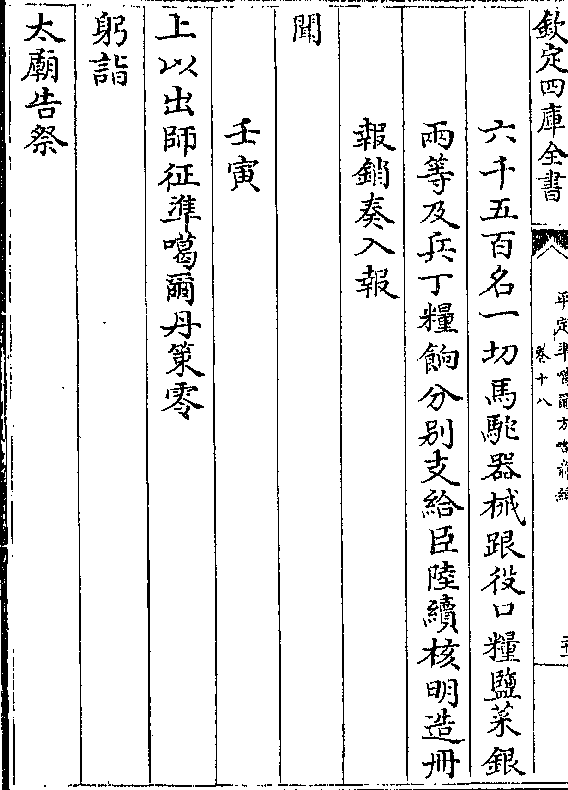 欽定四庫全書
平定準噶爾方畧前編
卷十八
六千五百名一切馬駝器械跟役口糧鹽菜銀
兩等及兵丁糧餉分别支給臣陸續核明造冊
報銷奏入報
聞
壬寅
上以出師征準噶爾丹策零
躬詣
太廟告祭